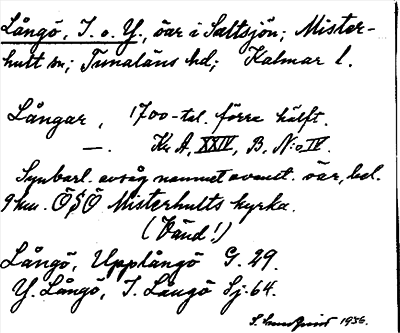 Långö, I. o. Y., öar i Saltsjön; Mister-
hult sn; Tunaläns hd; Kalmar l.
Långar, 1700-tal. förra hälft.
—. Kr. A, XXIV, B, N:o IV.
Synbarl. avsåg namnet avenst. öar, bel.
9 km. ÖSÖ Misterhults kyrka.
(Vänd!)
Långö, Upplångö G. 29.
Y. Långö, I. Långö Sj. 64.
1936.